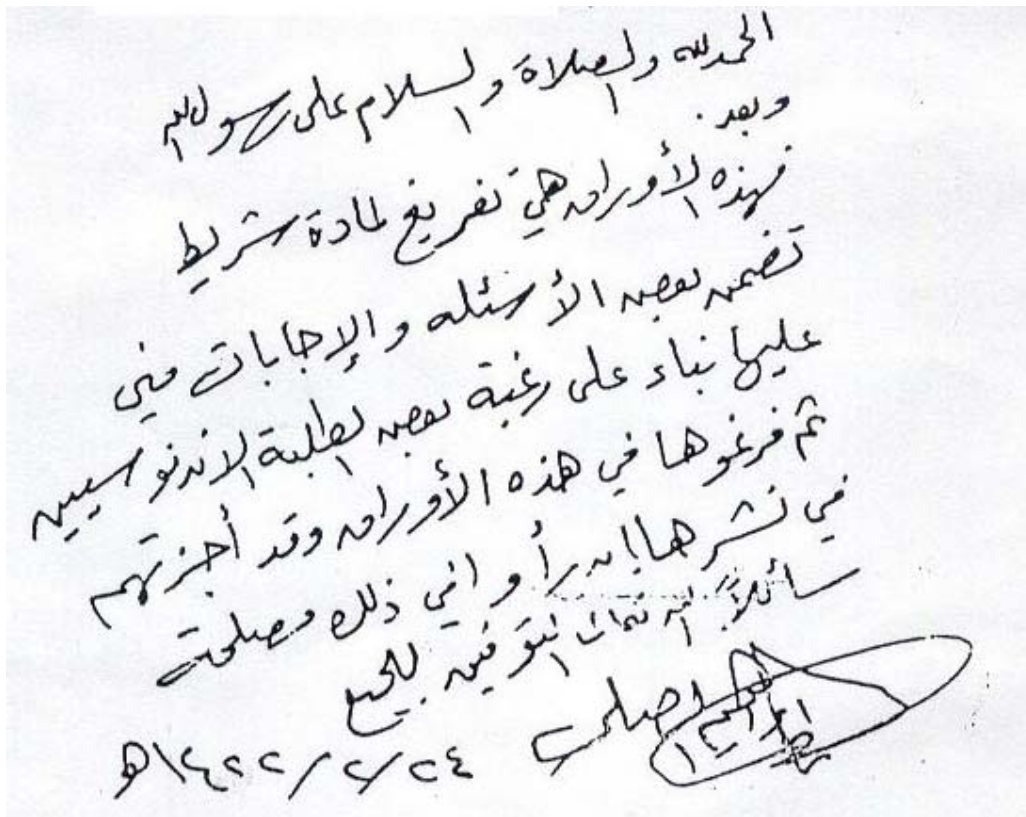 الحمد لله والصلاة والسلام على رسول الله
وبعد.
فهذه الأوراق هي تفريغ لمادة شريط
تضمن بعض الأسئلة والإجابات مني
عليها بناء على رغبة بعض الطلبة الاندنوسيين
ثم فرغوها في هذه الأوراق وقد أجزتهم
في نشرها إن رأوا في ذلك مصلحة
سائلاً الله تعالى التوفيق للجميع
٢٤ / ٢ / ١٤٢٢ هـ